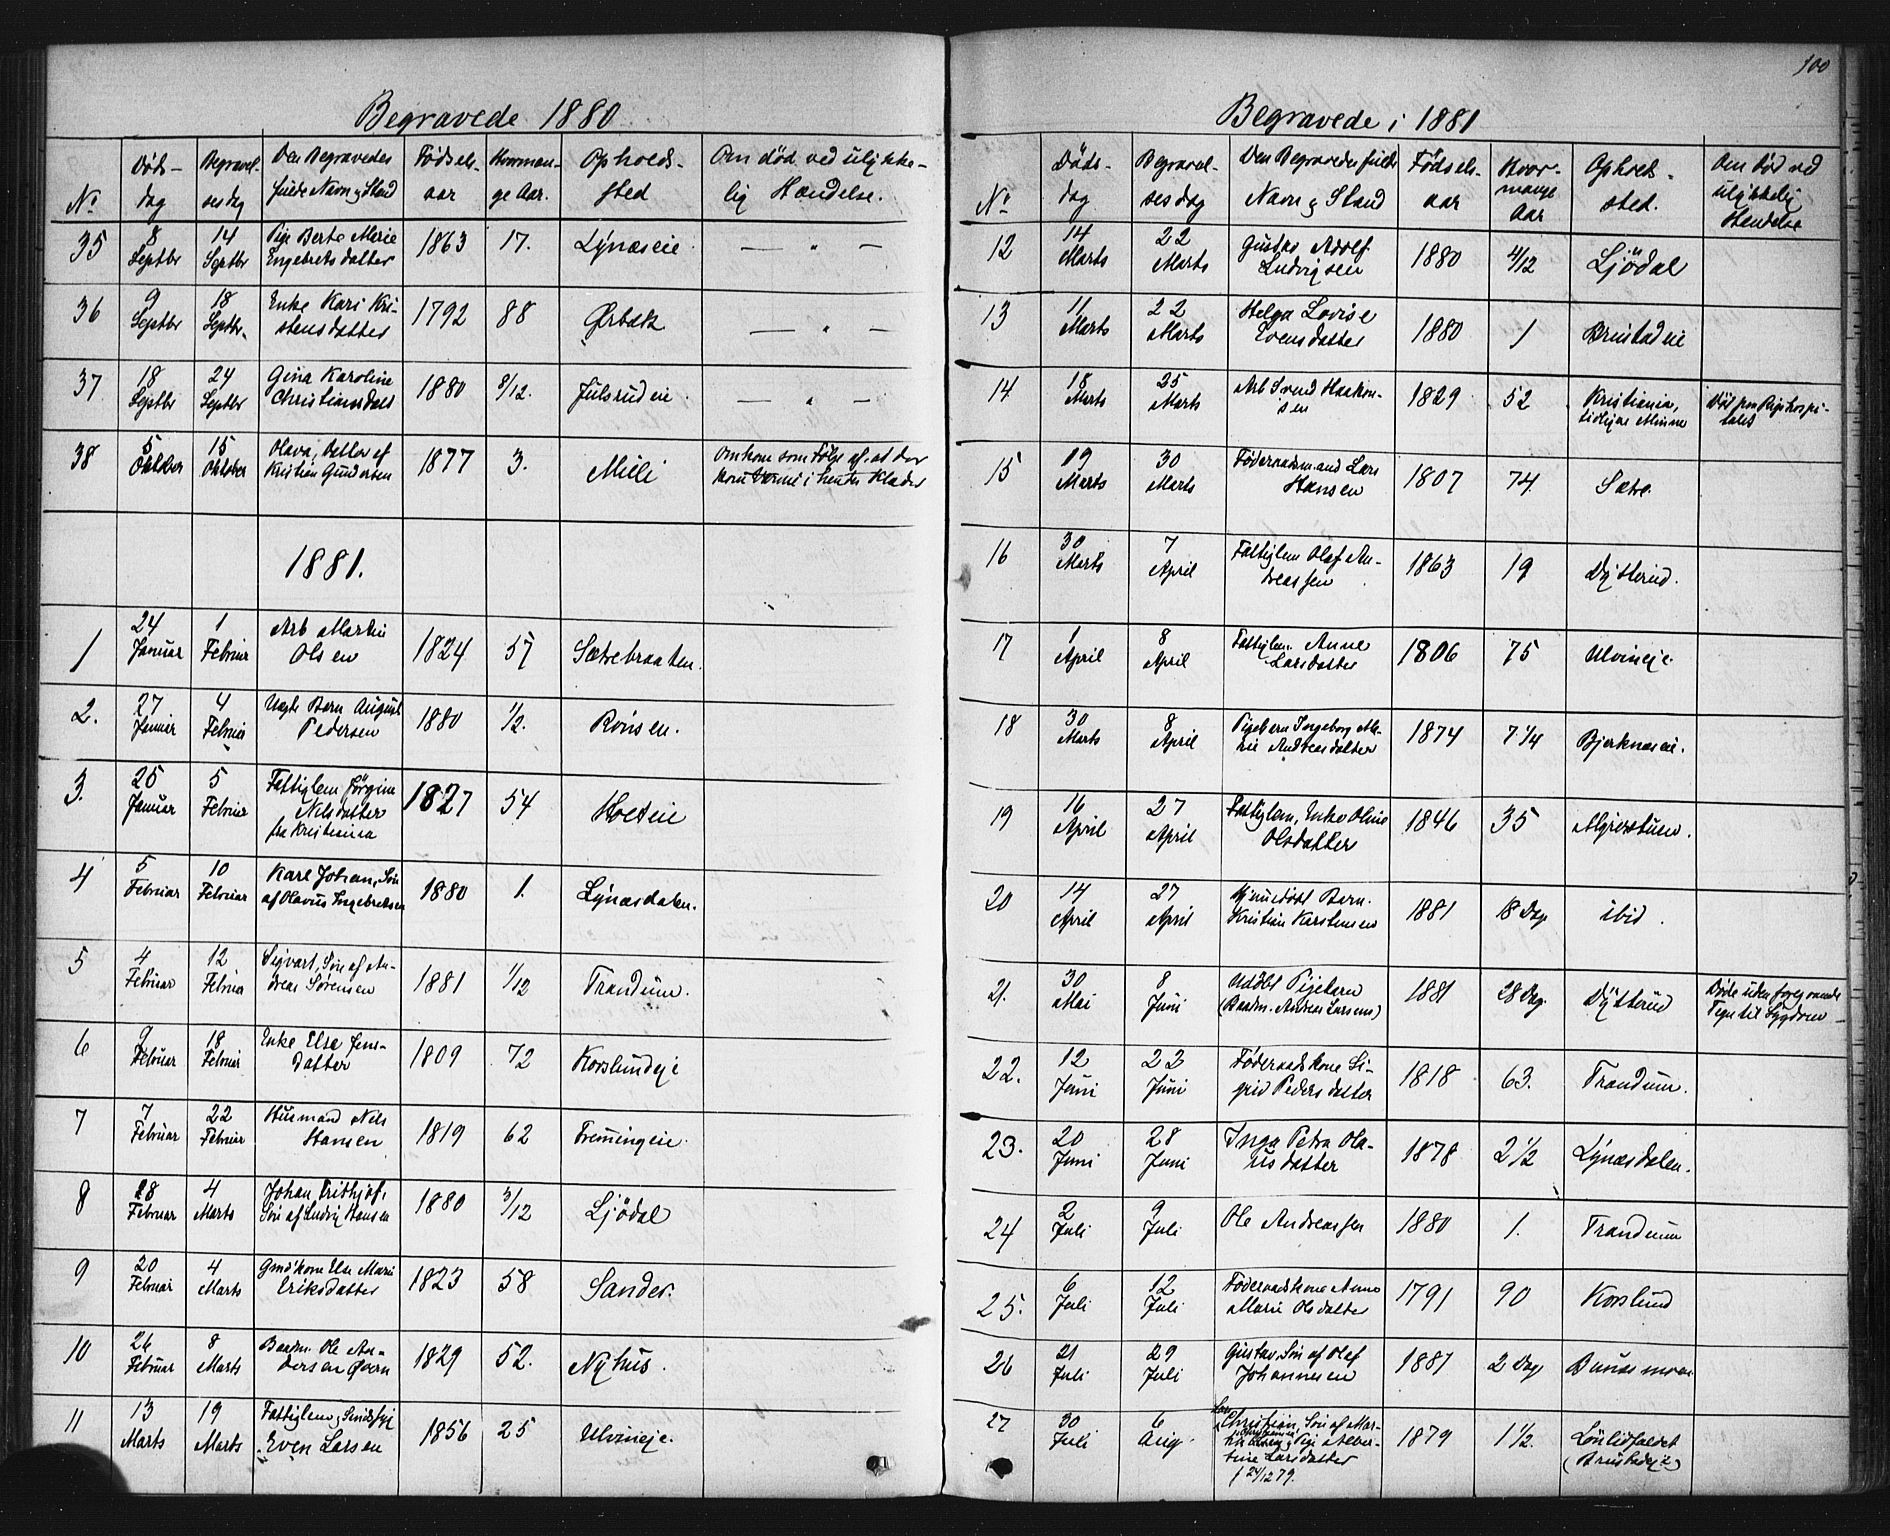 Begravede 1880
No
Døds-
dag
Begravel-
sesdag
Den Begravedes
fulde Navn og Stand
Fødsels-
aar
Hvorman-
ge Aar.
Opholds-
sted
Om død ved ulykke-
lig Hændelse.
35 8 Septbr 14 Septbr Pige Berte Marie
Engebretsdatter 1863 17. Lynæseie — " —
36 9 Septbr 18 Septbr. Enke Kari Kri-
stensdatter 1792 88 Ørbæk — " —
37 18 Septbr 24 Septbr Gina Karoline
Christiansdatt 1880 8/12. Julsrudeie — " —
38 5 Oktober 15 Oktober Olava, Datter af
Kristian Gundersen 1877 3. Mieli omkom som Følge af at der
kom i hendes Klæder
1881.
1 24 Januar 1 Februar Arb Martin
Olsen 1824 57 Sætrebraaten.
2. 27 Januar 4 Februar Uægte Barn August
Pedersen 1880 1/2. Rönsen.
3. 25 Januar 5 Februar Fattiglem Jørgine
Nilsdatter
fra Kristiania 1827 54 Holteie
4 5 Februar 10 Februar Karl Johan, Søn
af Olavus Ingebretsen 1880 1. Lynæsdalen.
5 4 Februar 12 Februar Sigvart, Søn af An-
dreas Sørensen 1881 1/12 Trandum.
6 9 Februar 18 Februar Enke Else Jens-
datter 1809 72 Korslundeje
7 7 Februar 22 Februar Husmand Nils
Hansen 1819 62 Tremingeie.
8 28 Februar 4 Marts Johan Frithjof,
Søn af Ludvig Hansen 1880 3/12 Ljödal
9 20 Februar 4 Marts Gmdkone Else Marie
Eriksdatter 1823 58 Sander.
10 26 Februar 8 Marts Baadm. Ole An-
dersen 1829 52. Nyhus.
11 13 Marts 19 Marts Fattiglem,
Even Larsen 1856 25 Ulvineje.
100
Begravede i 1881
No
Døds-
dag
Begravel-
sesdag
Den Begravedes fulde
Navn og Stand
Fødsels-
aar
Hvor-
mange
Aar
Ophold-
sted.
Om død ved
ulykkelig
Hændelse
12 14 Marts 22 Marts Gustav Adolf
Ludvigsen 1880 4/12 Ljödal
13 11 Marts 22 Marts Helga Lovise
Evensdatter 1880 1 Brustadeie
14 18 Marts 25 Marts Arb Svend Haakon-
sen 1829 52 Kristiania,
tidligere Minne Död paa Rigshospi-
talet
15 19 Marts 30 Marts Föderaadsmand Lars
Hansen 1807 74. Sætre.
16 30 Marts 7 April Fattiglem Olaf An-
dreassen 1863 19 Dytterud.
17 1 April 8 April Fattiglem. Anne
Larsdatter 1806 75 Ulvineje.
18 30 Marts 8 April Pigebarn Ingeborg Ma-
rie Andreasdatter 1874 7 1/4 Bjerknæseie.
19 16 April 27 April Fattiglem, Enke Oline
Olsdatter 1846 35 Algierstuen.
20 14 April 27 April Hjemmedøbt Barn.
Kristian Karstensen 1881 18 Dag ibid.
21. 30 Mai 8 Juni Udöbt Pigebarn
(Baadm. Andreas Larsens) 1881 28 Dag. Dytterud Døde uden foregaaende
Tegn til Sygdom
22. 12 Juni 22 Juni Föderaadskone Si-
grid Pedersdatter 1818 63. Trandum.
23. 20 Juni 28 Juni Inga Petra Ola-
usdatter 1878 2 1/2 Lynæsdalen.
24 2 Juli 9 Juli Ole Andreassen 1880 1. Trandum
25. 6 Juli 12 Juli Föderaadskone Anne
Marie Olsdatter 1791 90 Korslund
26 21 Juli 29 Juli Gustav, Søn af Olaf
Johannesen 1881 2 Dag
27 30 Juli 6 Aug. Lars
Christian, Søn af Mar-
Pige Alber-
tine Larsdatter
f 24/12 79. 1879 1 1/2.